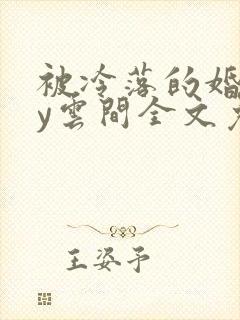 被冷落的婚
y雲間全文
王姿予